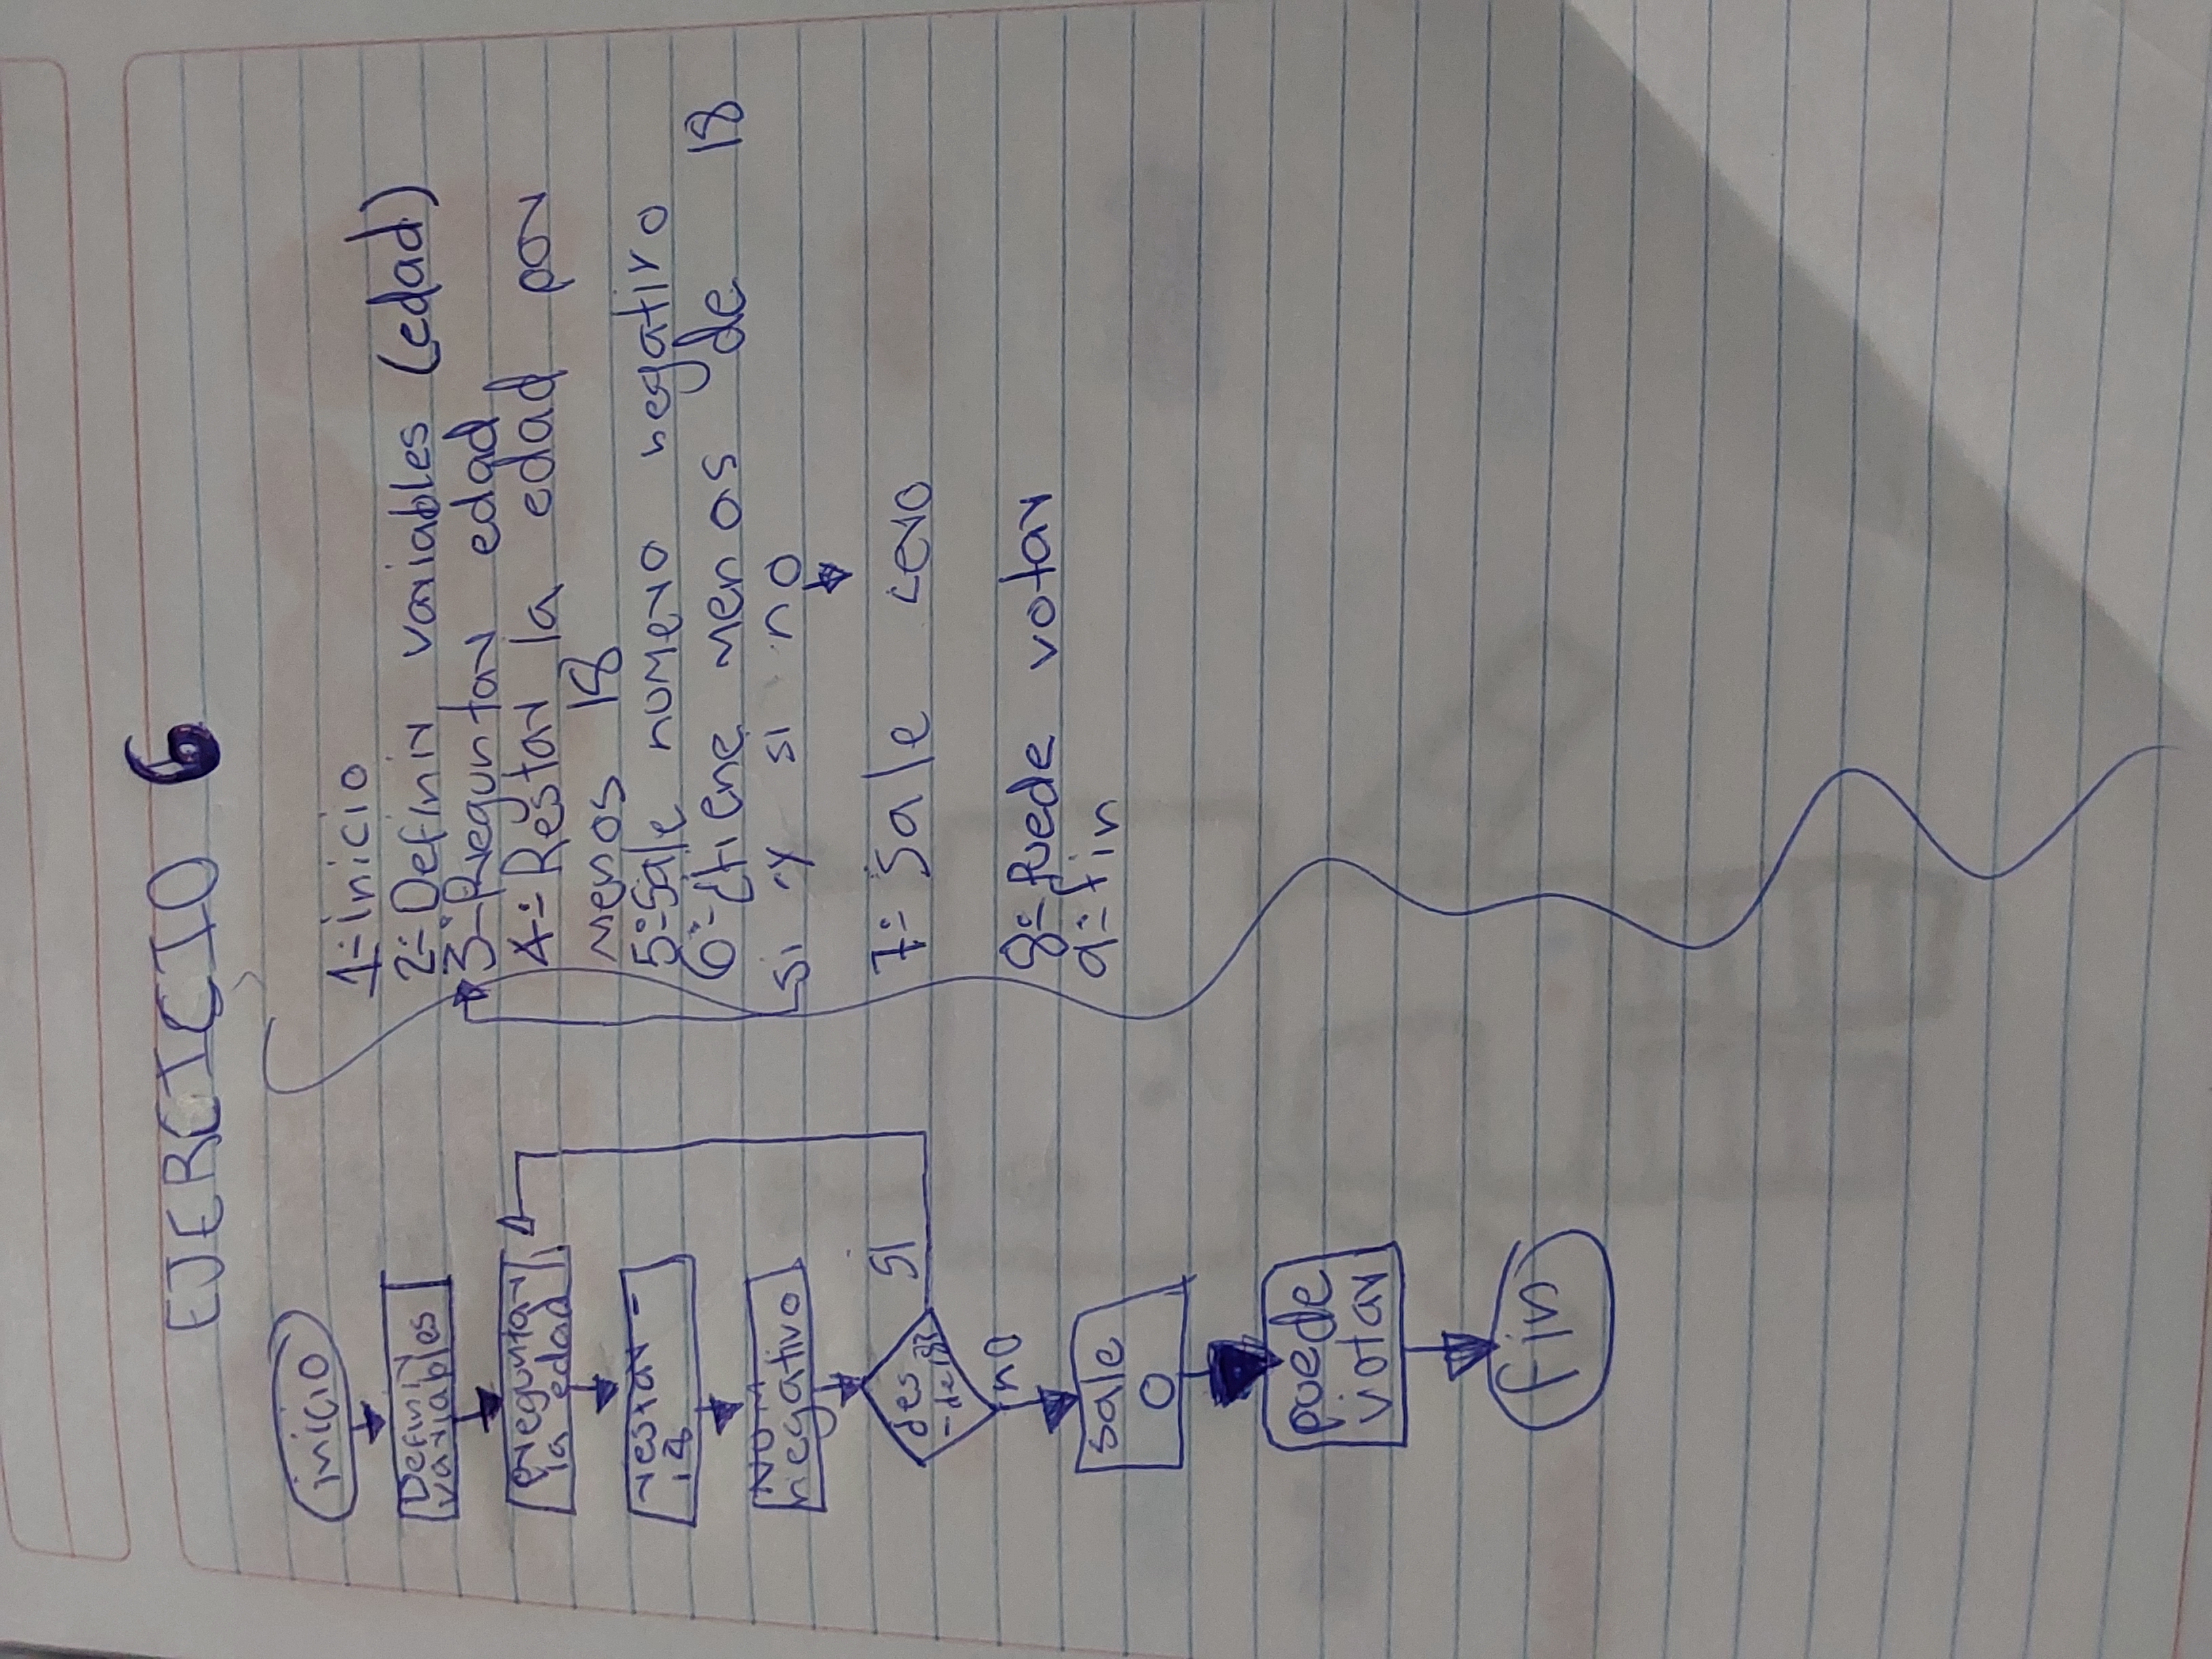 EJERCICIO 6
inicio
Definir
variables
Preguntar
la edad
restar -
18
NUM
negativo
des
-de 18
SI
no
sale
0
puede
votar
fin
1:-inicio
2:-Definir variables (edad)
3:-Preguntar edad
4:-Restar la edad por
menos 18
5:-Sale numero negativo
6:-¿tiene menos de 18
si y si no
7:- Sale cero
8:- Puede votar
9:-fin